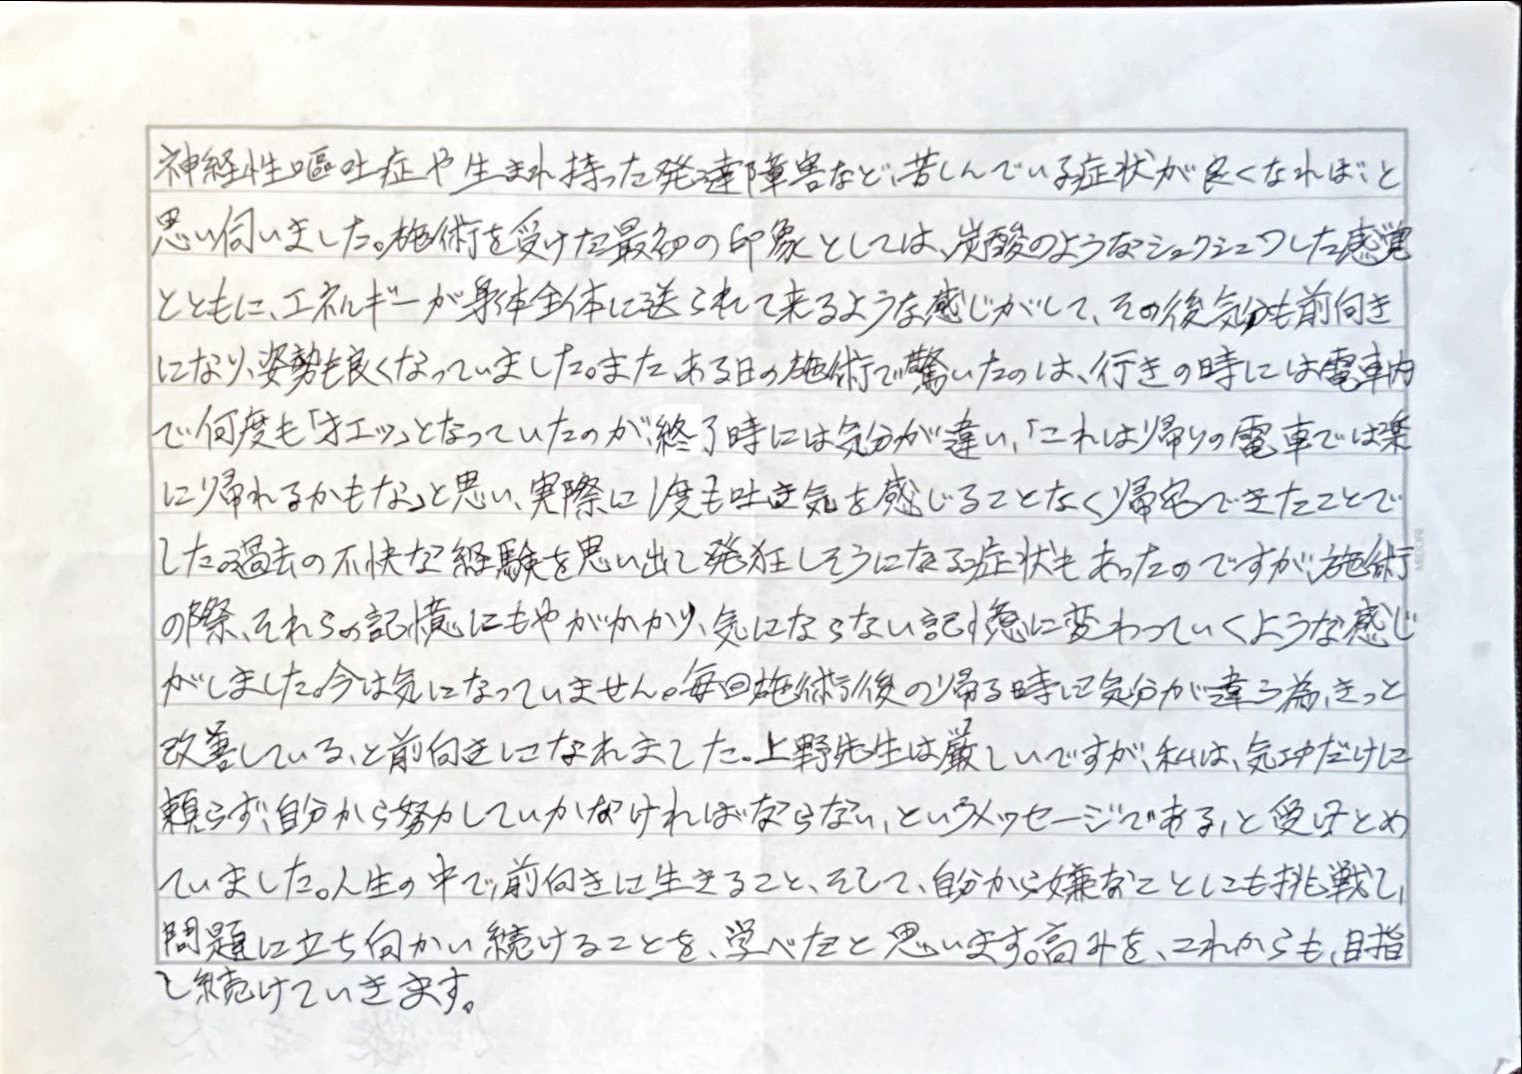 神経性嘔吐症や生まれ持った発達障害など、苦しんでいる症状が良くなれば、と
思い伺いました。施術を受けた最初の印象としては、炭酸のようなシュワシュワした感覚
とともに、エネルギーが身体全体に送られて来るような感じがして、その後気分も前向き
になり、姿勢も良くなっていました。また、ある日の施術で驚いたのは、行きの時には電車内
で何度も「オエッ」となっていたのが、終了時には気分が違い、「これは帰りの電車では楽
に帰れるかもな」と思い、実際に1度も吐き気を感じることなく帰宅できたことで
した。過去の不快な経験を思い出し発狂しそうになる症状もあったのですが、施術
の際、それらの記憶にもやがかかり、気にならない記憶に変わっていくような感じ
がしました。今は気になっていません。毎回施術後の帰る時に気分が違う為、きっと
改善している、と前向きになれました。上野先生は厳しいですが、私は、気功だけに
頼らず、自分から努力していかなければならない、というメッセージである、と受けとめ
ていました。人生の中で、前向きに生きること、そして、自分から嫌なことにも挑戦し、
問題に立ち向かい続けることを、学べたと思います。高みを、これからも、目指
し続けていきます。
MIDORI